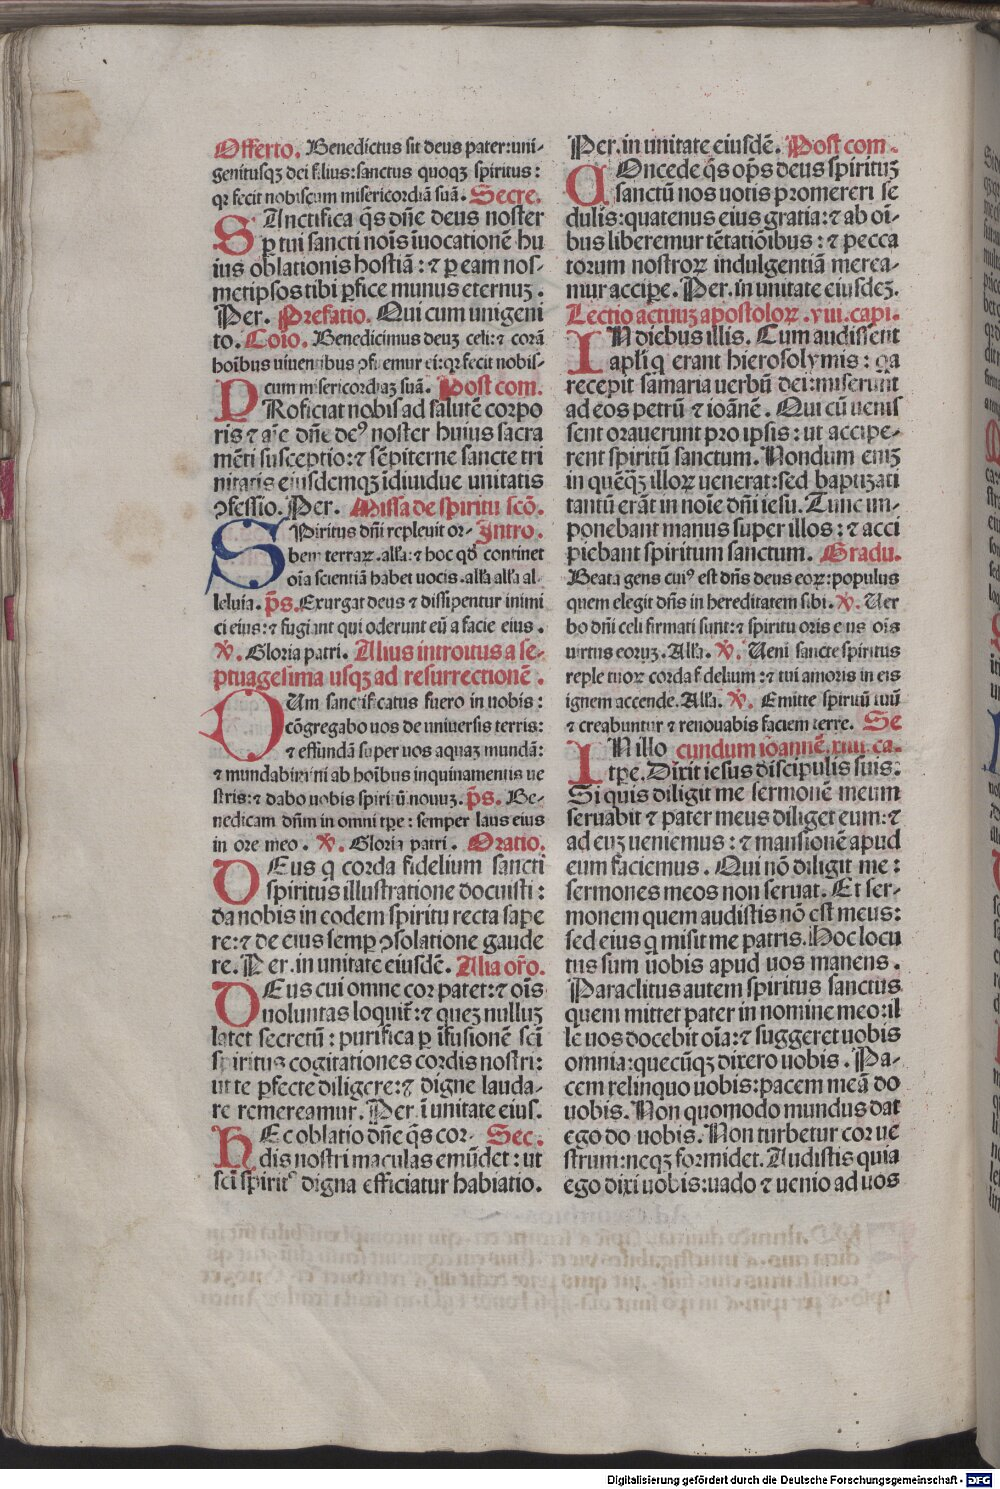 Offerto. Benedictus sit deus pater:uni-
genitusqꝫ dei filius:sanctus quoqꝫ spiritus:
qꝛ fecit nobiscum misericordiã suã. Secre.
SAnctifica q̃s dñe deus noster
ꝑ tui sancti nois̃ ĩuocationẽ hu
ius oblationis hostiã: ⁊ ꝑ eam nos-
metipsos tibi ꝑfice munus eternuꝫ.
Per. Prefatio. Qui cum unigeni
to. Coĩo. Benedicimus deuꝫ celi:⁊ corã
hoĩbus uiuentibus ꝯfitemur ei:qꝛ fecit nobis-
cum misericordiaꝫ suã. Post com.
PRoficiat nobis ad salutẽ corpo
ris ⁊ aĩe dñe deꝰ noster huius sacra
mẽti susceptio:⁊ sẽpiterne sancte tri
nitatis eiusdemqꝫ ĩdiuidue unitatis
ꝯfessio. Per. Missa de spiritu scõ.
SPiritus dñi repleuit or- Intro.
bem terraꝝ.alľa:⁊ hoc qđ continet
oĩa scientiã habet uocis.alľa alľa al-
leluia. p̃s. Exurgat deus ⁊ dissipentur inimi
ci eius:⁊ fugiant qui oderunt eũ a facie eius.
℣. Gloria patri. Alius introitus a se-
ptuagesima usqꝫ ad resurrectionẽ.
CUm sanctificatus fuero in uobis:
cõgregabo uos de uniuersis terris:
⁊ effundã super uos aquaꝫ mundã:
⁊ mundabimini ab hoĩbus inquinamentis ue
stris:⁊ dabo uobis spiritũ nouuꝫ. p̃s. Be-
nedicam dñm in omni tꝑe: semper laus eius
in ore meo. ℣. Gloria patri. Oratio.
DEus q̃ corda fidelium sancti
spiritus illustratione docuisti:
da nobis in eodem spiritu recta sape
re:⁊ de eius semꝑ ꝯsolatione gaude
re. Per.in unitate eiusdẽ. Alia or̃o.
DEus cui omne cor patet:⁊ oĩs
uoluntas loquit̃:⁊ queꝫ nulluꝫ
latet secretũ: purifica ꝑ ĩfusionẽ sc̃i
spiritus cogitationes cordis nostri:
ut te ꝑfecte diligere:⁊ digne lauda-
re remereamur. Per.ĩ unitate eius.
HEc oblatio dñe q̃s cor- Sec.
dis nostri maculas emũdet: ut
sc̃i spiritꝰ digna efficiatur habiatio.
Per.in unitate eiusdẽ. Post com.
COncede q̃s op̃s deus spirituꝫ
sanctũ nos uotis promereri se
dulis:quatenus eius gratia:⁊ ab oĩ-
bus liberemur tẽtatiõibus: ⁊ pecca
torum nostroꝝ indulgentiã merea-
mur accipe. Per.in unitate eiusdeꝫ.
Lectio actuuꝫ apostoloꝝ.viii.capi.
IN diebus illis. Cum audissent
apľi q̃ erant hierosolymis: qa
recepit samaria uerbũ dei:miserunt
ad eos petrũ ⁊ ioãnẽ. Qui cũ uenis
sent orauerunt pro ipsis: ut accipe-
rent spiritũ sanctum. Nondum eniꝫ
in quẽqꝫ illoꝝ uenerat:sed baptiꝫati
tantũ erãt in noĩe dñi iesu. Tunc im-
ponebant manus super illos: ⁊ acci
piebant spiritum sanctum. Gradu.
Beata gens cuiꝰ est dñs deus eoꝝ:populus
quem elegit dñs in hereditatem sibi. ℣. Uer
bo dñi celi firmati sunt:⁊ spiritu oris eius oĩs
uirtus eoruꝫ. Alľa. ℣. Ueni sancte spiritus
reple tuoꝝ corda fidelium:⁊ tui amoris in eis
ignem accende. Alľa. ℣. Emitte spirituũ tuũ
⁊ creabuntur ⁊ renouabis faciem terre. Se
IN illo cundum ioannẽ.xiiii.ca.
tꝑe. Dixit iesus discipulis suis:
Si quis diligit me sermonẽ meum
seruabit ⁊ pater meus diliget eum:⁊
ad euꝫ ueniemus: ⁊ mansionẽ apud
eum faciemus. Qui nõ diligit me:
sermones meos non seruat. Et ser-
monem quem audistis nõ est meus:
sed eius q̃ misit me patris. Hoc locu
tus sum uobis apud uos manens.
Paraclitus autem spiritus sanctus
quem mittet pater in nomine meo:il
le uos docebit oĩa:⁊ suggeret uobis
omnia:quecũqꝫ dixero uobis. Pa-
cem relinquo uobis:pacem meã do
uobis. Non quomodo mundus dat
ego do uobis. Non turbetur cor ue
strum:neqꝫ formidet. Audistis quia
ego dixi uobis:uado ⁊ uenio ad uos
Digitalisierung gefördert durch die Deutsche Forschungsgemeinschaft - DFG